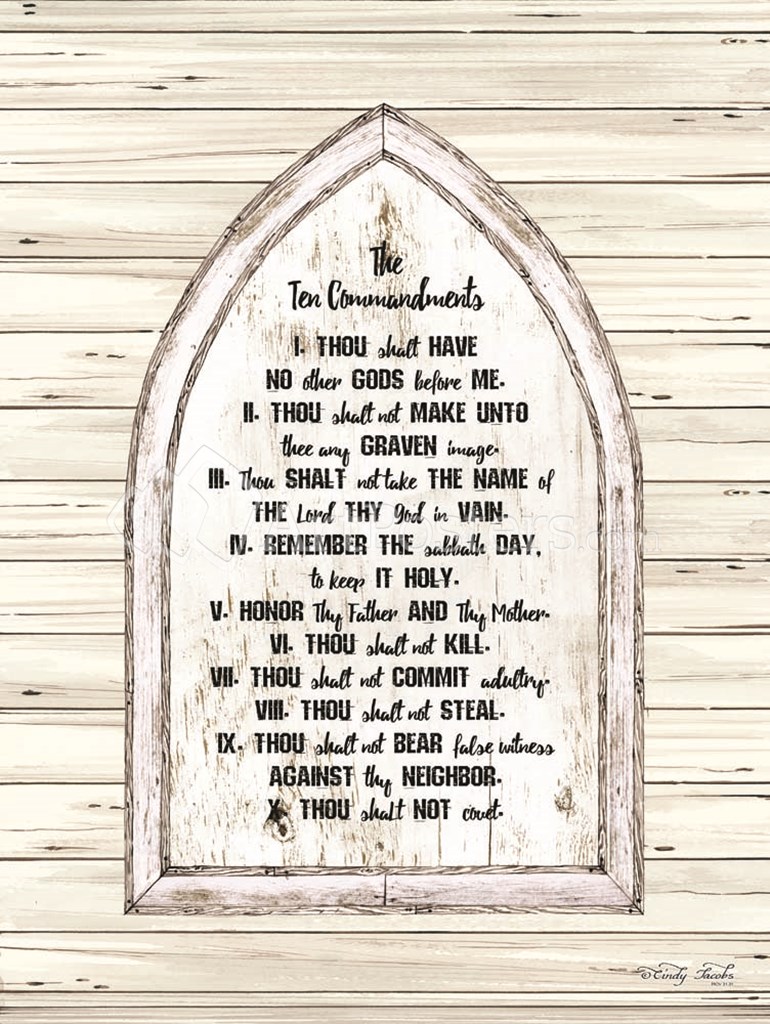 The
Ten Commandments
I. THOU shalt HAVE
NO other GODS before ME.
II. THOU shalt not MAKE UNTO
thee any GRAVEN image.
III. Thou SHALT not take THE NAME of
THE Lord THY God in VAIN.
IV. REMEMBER THE sabbath DAY,
to keep IT HOLY.
V. HONOR Thy Father AND Thy Mother.
VI. THOU shalt not KILL.
VII. THOU shalt not COMMIT adultry.
VIII. THOU shalt not STEAL.
IX. THOU shalt not BEAR false witness
AGAINST thy NEIGHBOR.
X. THOU shalt NOT covet.
©Cindy Jacobs